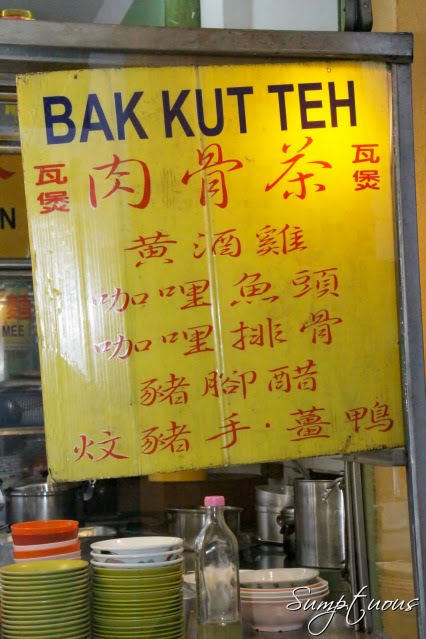 BAK KUT TEH
瓦煲 肉骨茶 瓦煲
黄酒雞
咖哩魚頭
咖哩排骨
豬腳醋
炆豬手·薑鴨
N
MEE
Sumptuous